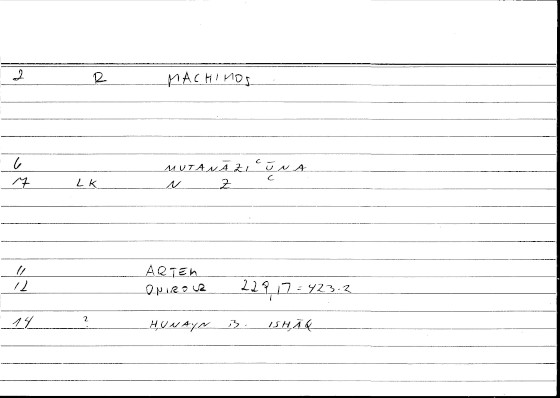 2 R MACHIMOS
6 MUTANĀZIʿŪNA
17 LK N Z ʿ
11 ARTEM
12 ONIROCR 229,17 = 423.2
14 ? ḤUNAYN B. ISḤĀQ